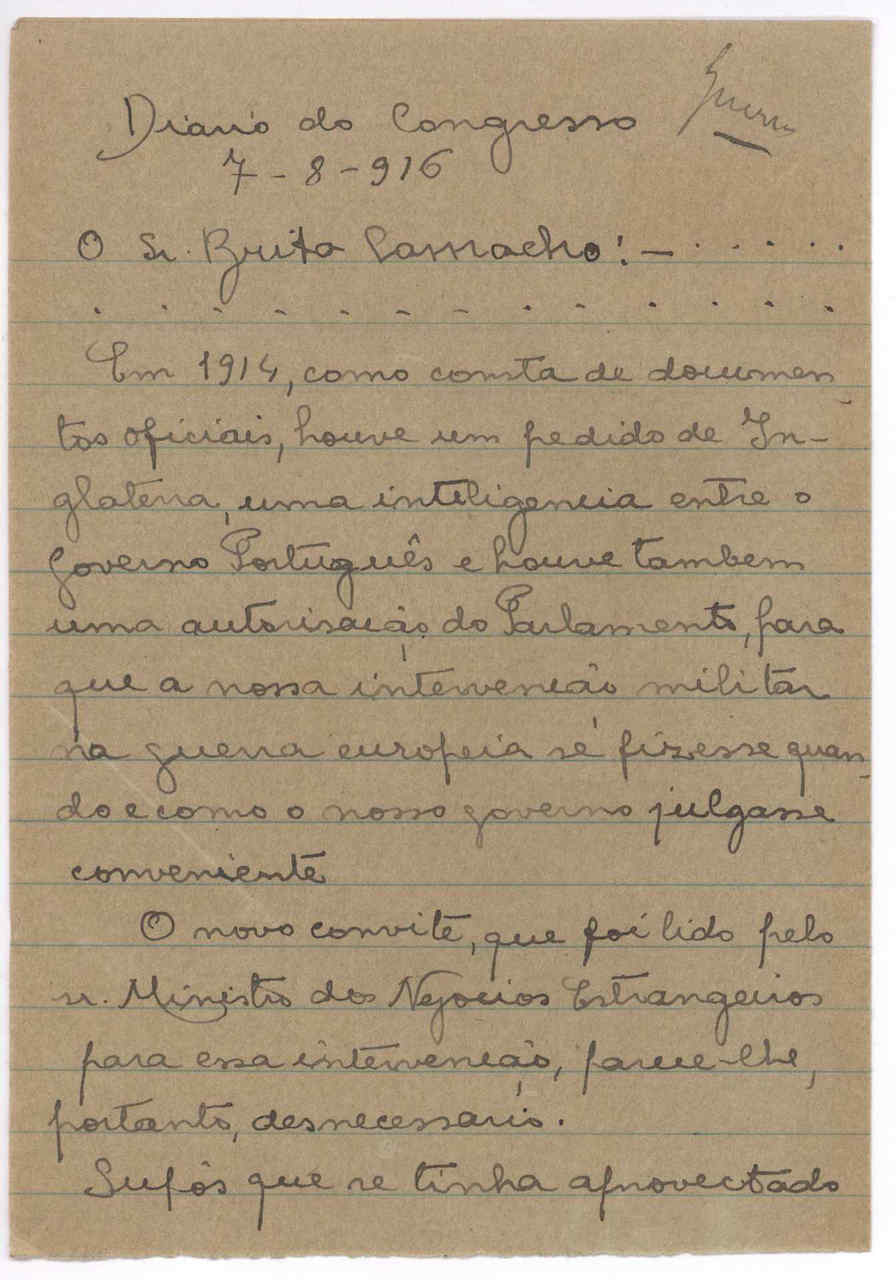 Guerra
Diario do Congresso
7 - 8 - 916
O Sr. Brito Camacho: — . . . . .
. . . . . . . . . . . . .
Em 1914, como consta de documen-
tos oficiais, houve um pedido de In-
glaterra, uma inteligencia entre o
governo Português e houve tambem
uma autorisação do Parlamento, para
que a nossa intervenção militar
na guerra europeia sé fizesse quan-
do e como o nosso governo julgasse
conveniente
O novo convite, que foi lido pelo
sr. Ministro dos Negocios Estrangeiros
para essa intervenção, parece-lhe,
portanto, desnecessario.
Supôs que se tinha aproveitado